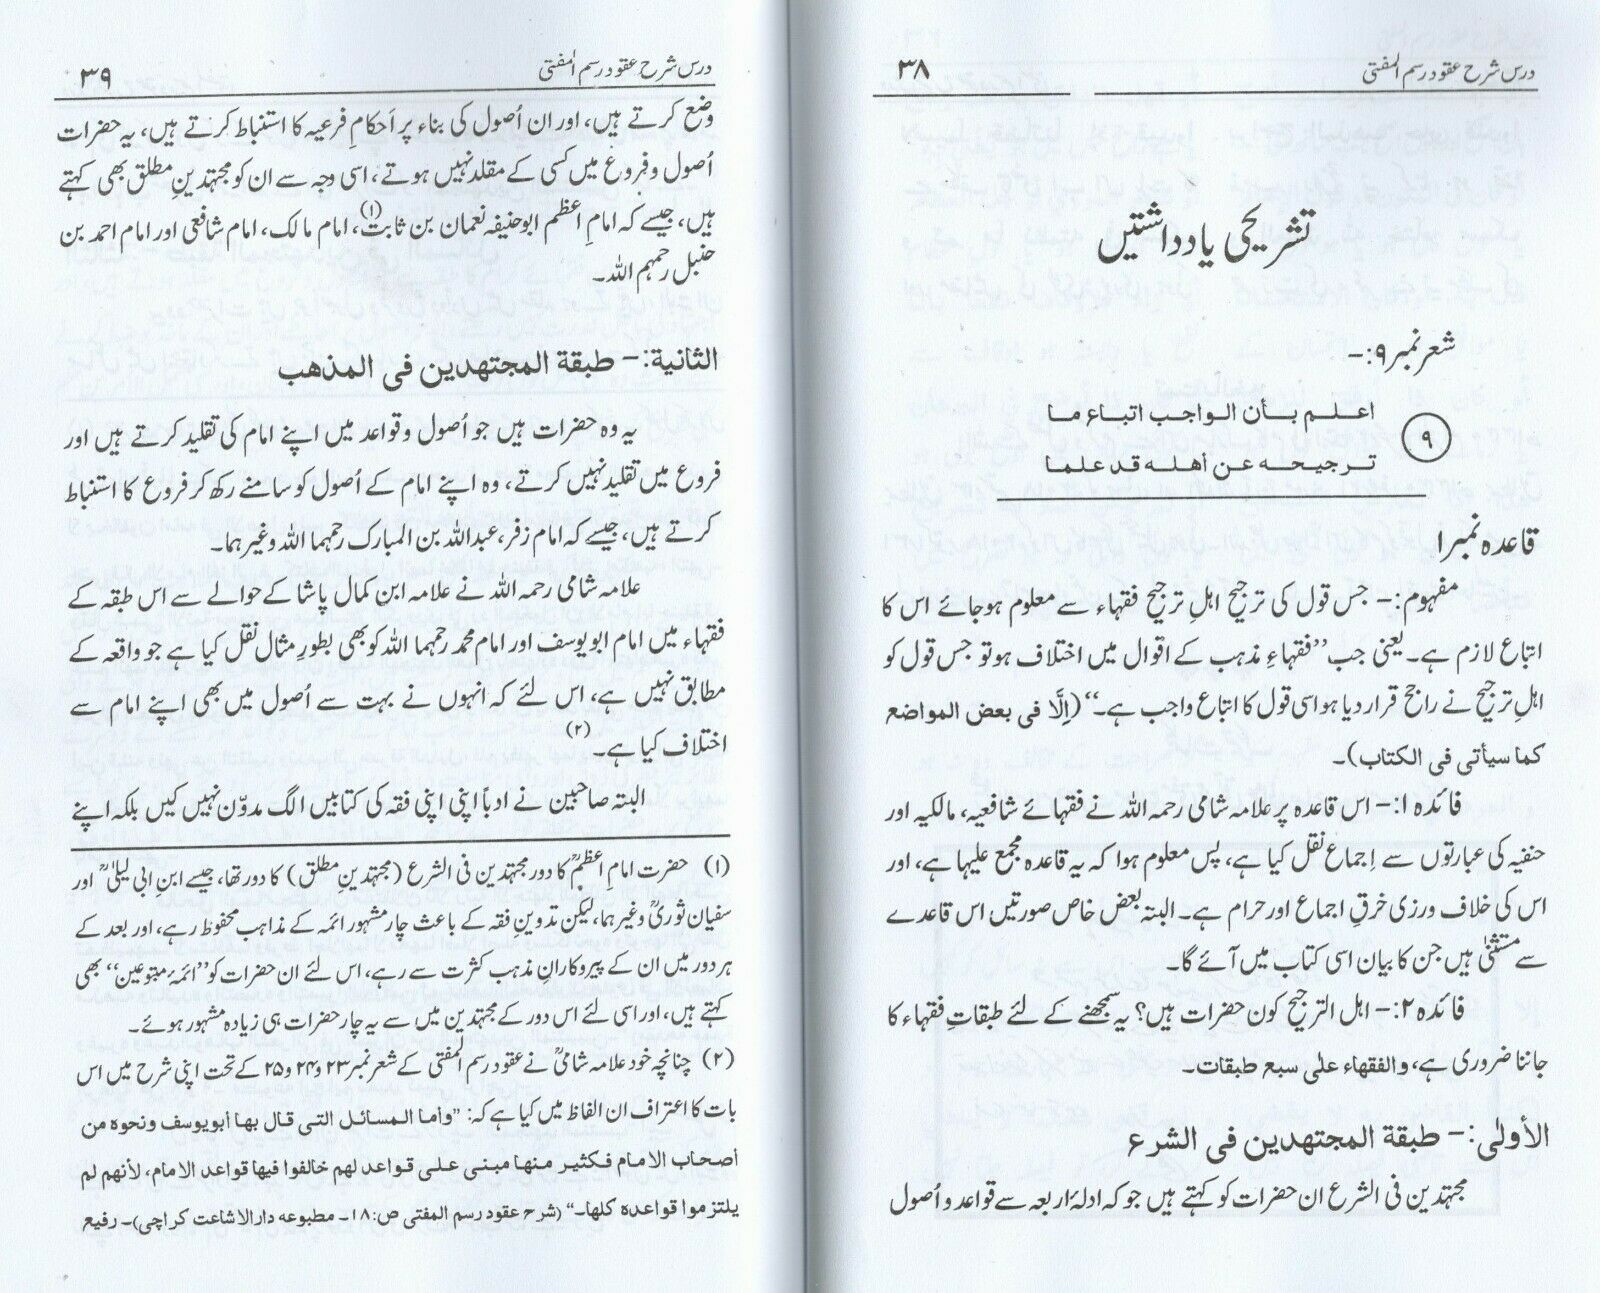 درس شرح عقود رسم المفتی
۳۸
تشریحی یادداشتیں
شعر نمبر ۹:-
۹
اعلم بأن الواجب اتباع ما
ترجیحه عن أهله قد علما
قاعدہ نمبر ۱
مفہوم:- جس قول کی ترجیح اہلِ ترجیح فقہاء سے معلوم ہوجائے اس کا
اتباع لازم ہے۔ یعنی جب ’’فقہاءِ مذہب کے اقوال میں اختلاف ہو تو جس قول کو
اہلِ ترجیح نے راجح قرار دیا ہو اسی قول کا اتباع واجب ہے۔‘‘ (إلَّا فی بعض المواضع
کما سیأتی فی الکتاب)۔
فائدہ ۱:- اس قاعدہ پر علامہ شامی رحمہ اللہ نے فقہائے شافعیہ، مالکیہ اور
حنفیہ کی عبارتوں سے اِجماع نقل کیا ہے، پس معلوم ہوا کہ یہ قاعدہ مجمع علیہا ہے، اور
اس کی خلاف ورزی خرقِ اجماع اور حرام ہے۔ البتہ بعض خاص صورتیں اس قاعدے
سے مستثنیٰ ہیں جن کا بیان اسی کتاب میں آئے گا۔
فائدہ ۲:- اہل الترجیح کون حضرات ہیں؟ یہ سمجھنے کے لئے طبقاتِ فقہاء کا
جاننا ضروری ہے، والفقهاء علٰی سبع طبقات۔
الأولٰی:- طبقة المجتهدین فی الشرع
مجتہدین فی الشرع ان حضرات کو کہتے ہیں جو کہ ادلۂ اربعہ سے قواعد و اُصول
درس شرح عقود رسم المفتی
۳۹
وضع کرتے ہیں، اور ان اُصول کی بناء پر اَحکامِ فرعیہ کا استنباط کرتے ہیں، یہ حضرات
اُصول و فروع میں کسی کے مقلد نہیں ہوتے، اسی وجہ سے ان کو مجتہدینِ مطلق بھی کہتے
ہیں، جیسے کہ امامِ اعظم ابوحنیفہ نعمان بن ثابت(۱)، امام مالک، امام شافعی اور امام احمد بن
حنبل رحمہم اللہ۔
الثانیة:- طبقة المجتهدین فی المذهب
یہ وہ حضرات ہیں جو اُصول و قواعد میں اپنے امام کی تقلید کرتے ہیں اور
فروع میں تقلید نہیں کرتے، وہ اپنے امام کے اُصول کو سامنے رکھ کر فروع کا استنباط
کرتے ہیں، جیسے کہ امام زفر، عبداللہ بن المبارک رحمہما اللہ وغیرہما۔
علامہ شامی رحمہ اللہ نے علامہ ابن کمال پاشا کے حوالے سے اس طبقہ کے
فقہاء میں امام ابویوسف اور امام محمد رحمہما اللہ کو بھی بطورِ مثال نقل کیا ہے جو واقعہ کے
مطابق نہیں ہے، اس لئے کہ انہوں نے بہت سے اُصول میں بھی اپنے امام سے
اختلاف کیا ہے۔(۲)
البتہ صاحبین نے ادباً اپنی اپنی فقہ کی کتابیں الگ مدوّن نہیں کیں بلکہ اپنے
(۱) حضرت امامِ اعظمؒ کا دور مجتہدین فی الشرع (مجتہدینِ مطلق) کا دور تھا، جیسے ابن ابی لیلیٰؒ اور
سفیان ثوریؒ وغیرہما، لیکن تدوینِ فقہ کے باعث چار مشہور ائمہ کے مذاہب محفوظ رہے، اور بعد کے
ہر دور میں ان کے پیروکارانِ مذہب کثرت سے رہے، اس لئے ان حضرات کو ’’ائمۂ متبوعین‘‘ بھی
کہتے ہیں، اور اسی لئے اس دور کے مجتہدین میں سے یہ چار حضرات ہی زیادہ مشہور ہوئے۔
(۲) چنانچہ خود علامہ شامیؒ نے عقود رسم المفتی کے شعر نمبر ۲۳ و ۲۴ و ۲۵ کے تحت اپنی شرح میں اس
بات کا اعتراف ان الفاظ میں کیا ہے کہ: ”وأما المسائل التی قال بها أبویوسف ونحوه من
أصحاب الامام فکثیر منها مبنی علی قواعد لهم خالفوا فیها قواعد الامام، لأنهم لم
یلتزموا قواعده کلها۔“ (شرح عقود رسم المفتی ص:۱۸۔ مطبوعه دارالاشاعت کراچی)۔ رفیع